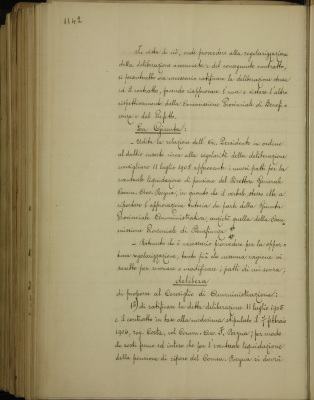 1142
In vista di ciò, onde provvedere alla regolarizzazione
della deliberazione accennata e del conseguente contratto,
si parrebbe ora necessario ratificare la deliberazione stessa
ed il contratto, facendo riapprovare l'una e l'altro
rispettivamente dalla Commissione Provinciale di Benefi-
cenza e dal Prefetto.
La Giunta:
- Udita la relazione dell' On. Presidente in ordine
al dubbio mosso circa alla regolarità della deliberazione
consigliare 11 luglio 1905 approvante i nuovi patti per la
eventuale liquidazione di pensione del Direttore Generale
Comm. Avv. in quanto che il verbale stesso ebbe a
riportare l'approvazione tutoria da parte della Giunta
Provinciale Amministrativa, anzichè quella della Com-
missione Provinciale di Beneficenza;
- Ritenuto che è necessario provvedere per la oppor-
tuna regolarizzazione, tanto più che nessuna ragione vi
sarebbe per innovare o modificare i patti di cui sopra;
delibera
di proporre al Consiglio di Amministrazione:
1º) di ratificare la detta deliberazione 11 luglio 1905
e il contratto in base alla medesima stipulato il 7 febbraio
1906, rog. col Comm. Avv. per modo
che resti fermo ed inteso che per l'eventuale liquidazione
della pensione di riposo del Comm. si dovrà